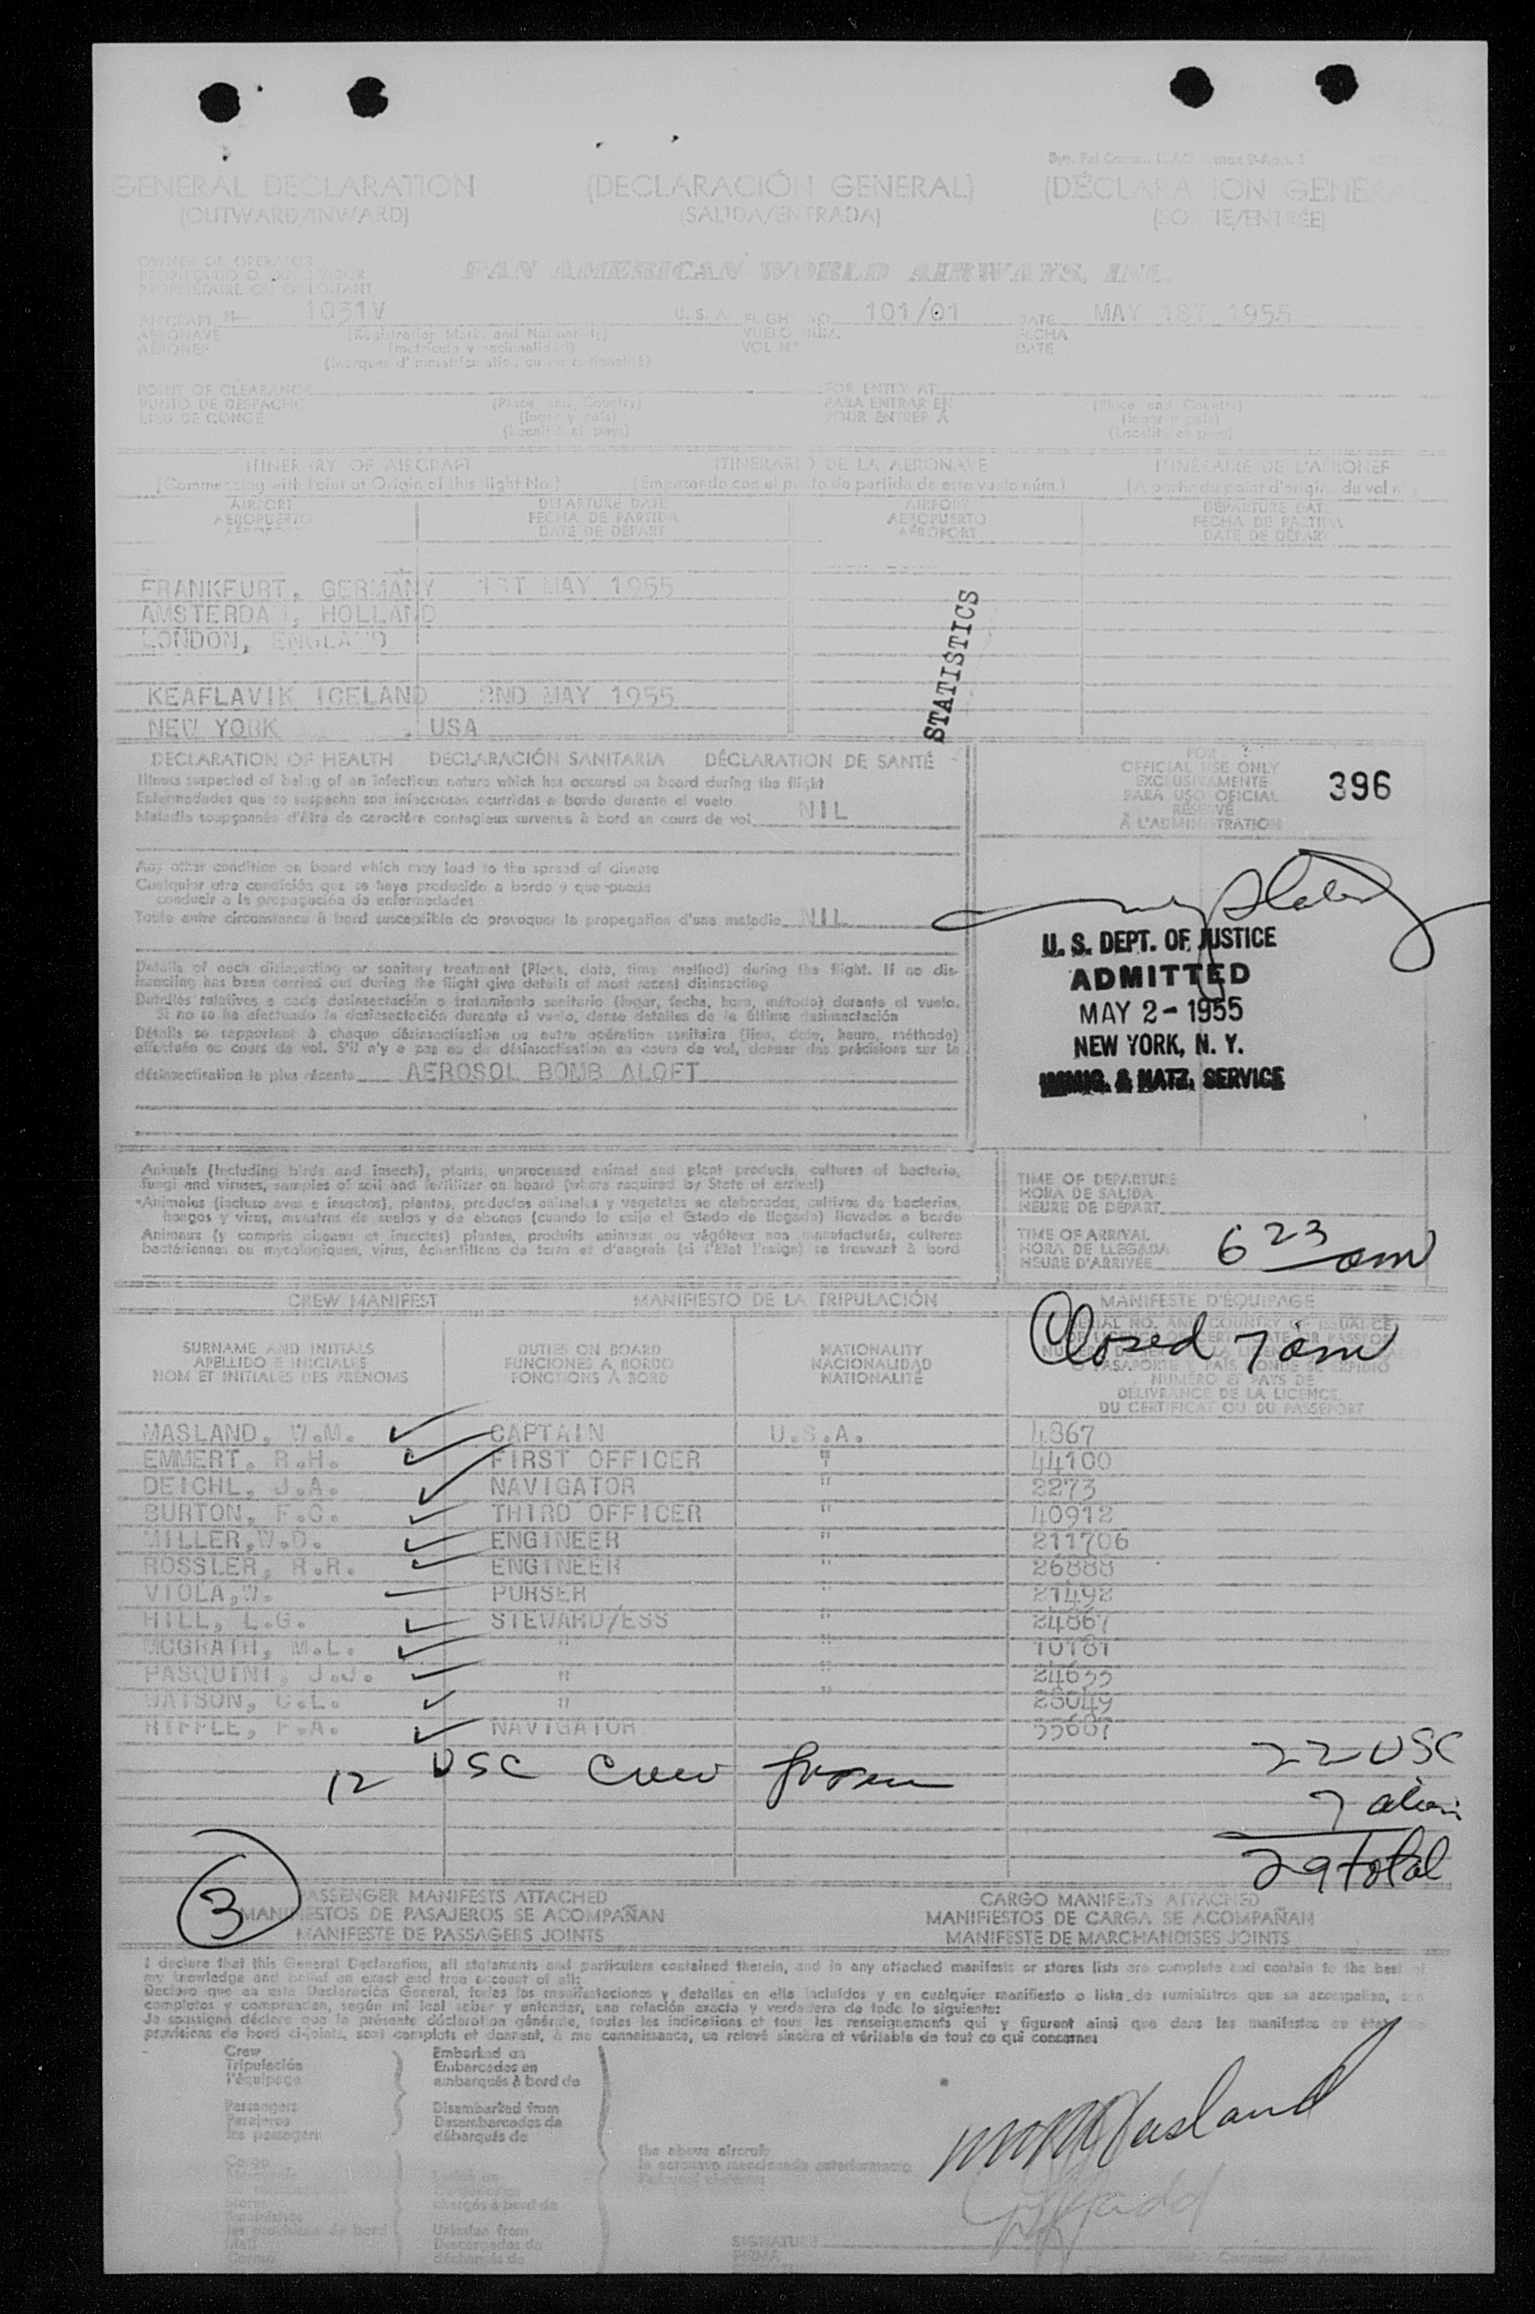 GENERAL DECLARATION (DECLARACIÓN GENERAL) (DÉCLARATION GENERALE)
(OUTWARD/INWARD) (SALIDA/ENTRADA) (SORTIE/ENTRÉE)
OWNER OR OPERATOR
PAN AMERICAN WORLD AIRWAYS, INC.
AIRCRAFT N- 1031V U.S.A. FLIGHT NO. 101/01 DATE MAY 1ST 1955
AERONAVE (Registration Marks and Nationality) VUELO NUM. FECHA
AERONEF (matricula y nacionalidad) VOL Nº DATE
(marques d'immatriculation ou nationalité)
POINT OF CLEARANCE FOR ENTRY AT
PUNTO DE DESPACHO (Place and Country) PARA ENTRAR EN (Place and Country)
LIEU DE CONGÉ (lugar y país) POUR ENTRER A (lugar y país)
(Localité et pays) (Localité et pays)
ITINERARY OF AIRCRAFT ITINERARIO DE LA AERONAVE ITINÉRAIRE DE L'AÉRONEF
(Commencing with Point of Origin of this flight No.) (Empezando con el punto de partida de este vuelo núm.) (A partir du point d'origine du vol nº)
AIRPORT DEPARTURE DATE AIRPORT DEPARTURE DATE
AEROPUERTO FECHA DE PARTIDA AEROPUERTO FECHA DE PARTIDA
AÉROPORT DATE DE DÉPART AÉROPORT DATE DE DÉPART
FRANKFURT, GERMANY 1ST MAY 1955
AMSTERDAM, HOLLAND
LONDON, ENGLAND
KEAFLAVIK ICELAND 2ND MAY 1955
NEW YORK , USA
STATISTICS
DECLARATION OF HEALTH DECLARACIÓN SANITARIA DÉCLARATION DE SANTÉ
Illness suspected of being of an infectious nature which has occured on board during the flight
Enfermedades que se sospecha son infecciosas ocurridas a bordo durante el vuelo
Maladie soupçonnée d'être de caractère contagieux survenue à bord en cours de vol NIL
Any other condition on board which may lead to the spread of disease
Cualquier otra condición que se haya producido a bordo y que pueda
conducir a la propagación de enfermedades
Toute autre circonstance à bord susceptible de provoquer la propagation d'une maladie NIL
Details of each disinsecting or sanitary treatment (Place, date, time, method) during the flight. If no dis-
insecting has been carried out during the flight give details of most recent disinsecting
Detalles relativos a cada desinsectación o tratamiento sanitario (lugar, fecha, hora, método) durante el vuelo.
Si no se ha efectuado la desinsectación durante el vuelo, dense detalles de la última desinsectación
Détails se rapportant à chaque désinsectisation ou autre opération sanitaire (lieu, date, heure, méthode)
effectuée au cours de vol. S'il n'y a pas eu de désinsectisation au cours de vol, donner des précisions sur la
désinsectisation la plus récente AEROSOL BOMB ALOFT
FOR
OFFICIAL USE ONLY
EXCLUSIVAMENTE
PARA USO OFICIAL
RÉSERVÉ
À L'ADMINISTRATION
396
U. S. DEPT. OF JUSTICE
ADMITTED
MAY 2 - 1955
NEW YORK, N. Y.
IMMIG. & NATZ. SERVICE
Animals (Including birds and insects), plants, unprocessed animal and plant products, cultures of bacteria,
fungi and viruses, samples of soil and fertilizer on board (where required by State of arrival)
Animales (incluso aves e insectos), plantas, productos animales y vegetales no elaborados, cultivos de bacterias,
hongos y virus, muestras de suelos y de abonos (cuando lo exija el Estado de llegada) llevados a bordo
Animaux (y compris oiseaux et insectes) plantes, produits animaux ou végétaux non manufacturés, cultures
bactériennes ou mycologiques, virus, échantillons de terre et d'engrais (si l'Etat l'exige) se trouvant à bord
TIME OF DEPARTURE
HORA DE SALIDA
HEURE DE DÉPART
TIME OF ARRIVAL
HORA DE LLEGADA
HEURE D'ARRIVÉE 6 23 am
CREW MANIFEST MANIFIESTO DE LA TRIPULACIÓN MANIFESTE D'ÉQUIPAGE
Closed 7 am
SURNAME AND INITIALS DUTIES ON BOARD NATIONALITY
APELLIDO E INICIALES FUNCIONES A BORDO NACIONALIDAD
NOM ET INITIALES DES PRÉNOMS FONCTIONS À BORD NATIONALITÉ
NUMÉRO ET PAYS DE
DÉLIVRANCE DE LA LICENCE
DU CERTIFICAT OU DU PASSEPORT
MASLAND, W.M. CAPTAIN U.S.A. 4867
EMMERT, R.H. FIRST OFFICER " 44100
DEICHL, J.A. NAVIGATOR " 2273
BURTON, F.C. THIRD OFFICER " 40912
MILLER,W.D. ENGINEER " 211706
ROSSLER, R.R. ENGINEER " 26888
VIOLA,W. PURSER " 21492
HILL, L.G. STEWARD/ESS " 24867
MCGRATH, M.L. " " 10181
PASQUINI, J.J. " " 24633
WATSON, C.L. " " 28049
RIFFLE, F.A. NAVIGATOR 33687
12 USC Crew
22 USC
7 alien
29 total
3
PASSENGER MANIFESTS ATTACHED CARGO MANIFESTS ATTACHED
MANIFIESTOS DE PASAJEROS SE ACOMPAÑAN MANIFIESTOS DE CARGA SE ACOMPAÑAN
MANIFESTE DE PASSAGERS JOINTS MANIFESTE DE MARCHANDISES JOINTS
I declare that this General Declaration, all statements and particulars contained therein, and in any attached manifests or stores lists are complete and contain to the best of
my knowledge and belief an exact and true account of all:
Declaro que en esta Declaración General, todas las manifestaciones y detalles en ella incluídos y en cualquier manifiesto o lista de suministros que se acompañan, son
completos y comprenden, según mi leal saber y entender, una relación exacta y verdadera de todo lo siguiente:
Je soussigné déclare que la présente déclaration générale, toutes les indications et tous les renseignements qui y figurent ainsi que dans les manifestes ou états de
provisions de bord ci-joints, sont complets et donnent, à ma connaissance, un relevé sincère et véritable de tout ce qui concerne:
Crew Embarked on
Tripulación Embarcados en
l'équipage embarqués à bord de
Passengers Disembarked from
Pasajeros Desembarcados de
les passagers débarqués de
Cargo the above aircraft
la aeronave mencionada anteriormente
chargés à bord de
Unladen from
Descargados de
déchargés de
WM Masland
SIGNATURE
FIRMA